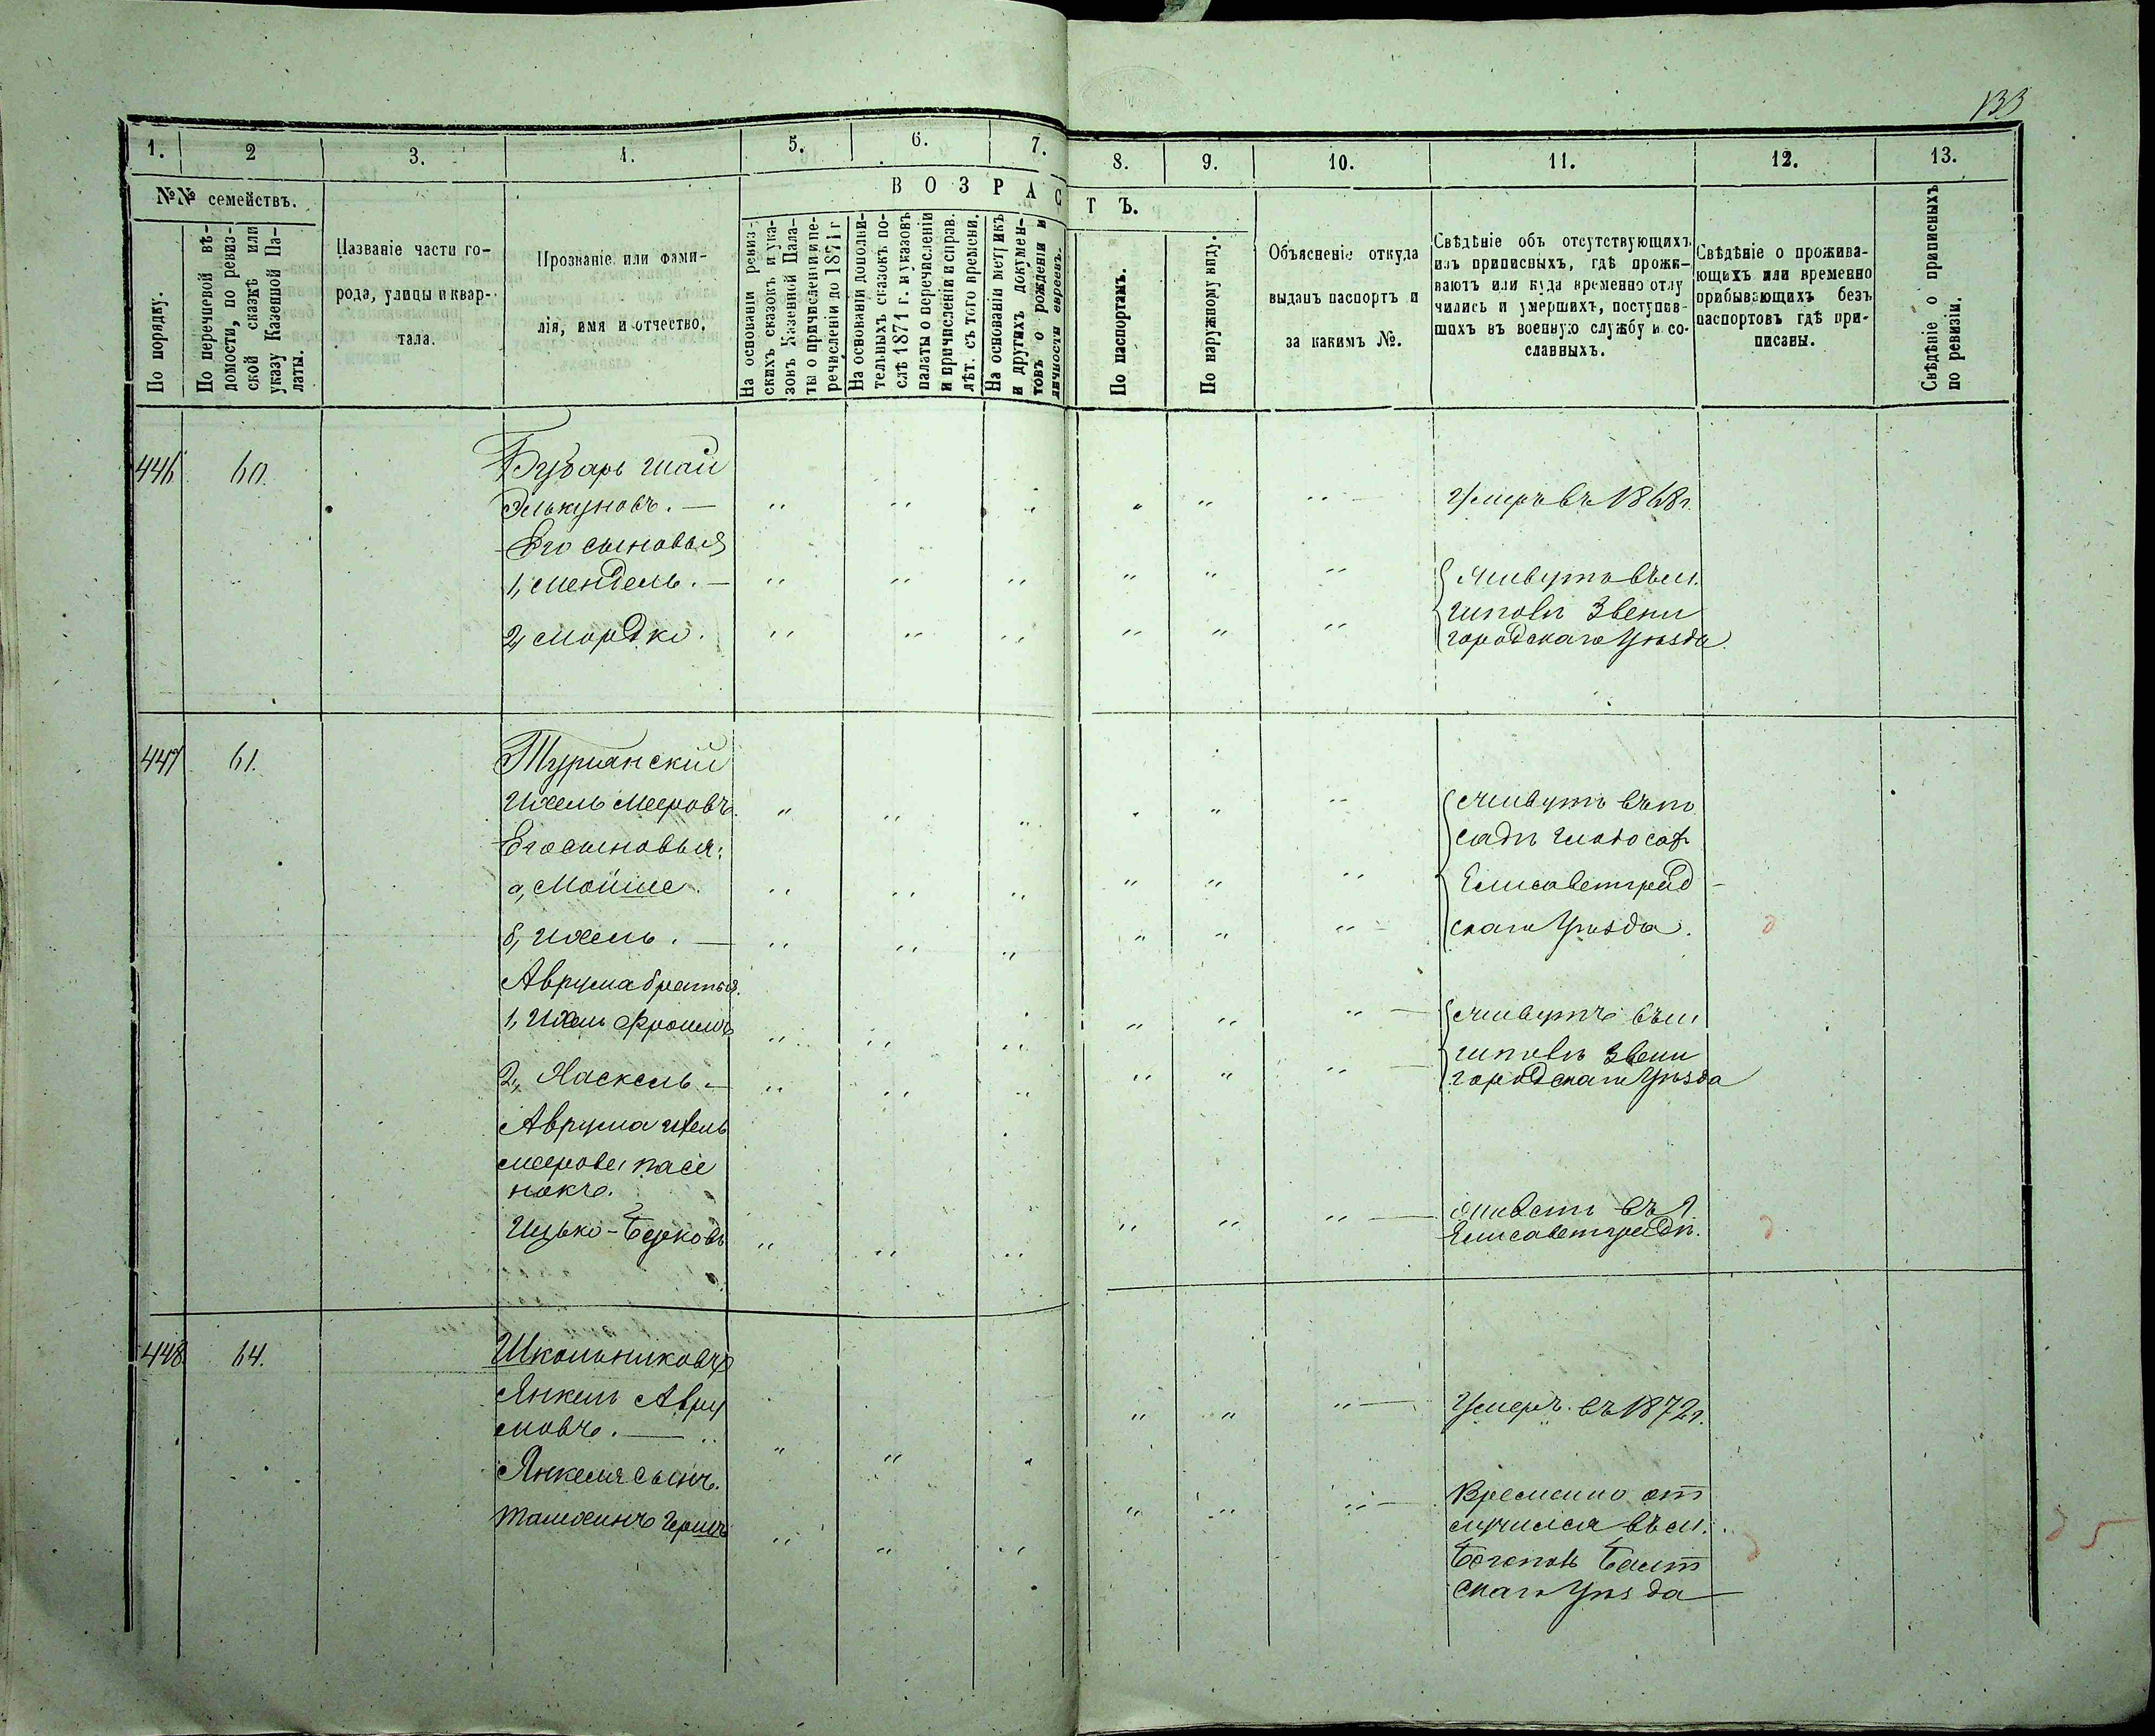 133
1. 2 3. 4. 5. 6. 7. 8. 9. 10. 11. 12. 13.
№№ семействъ.
По порядку.
По перечневой вѣ-
домости, по ревиз-
ской сказкѣ или
указу Казенной Па-
латы.
Названіе части го-
рода, улицы и квар-
тала.
Прозваніе или фами-
лія, имя и отчество.
ВОЗРАСТЪ.
На основаніи ревиз-
скихъ сказокъ и ука-
зовъ Казенной Пала-
ты о причисленіи и пе-
речисленіи до 1871 г
На основаніи дополни-
тельныхъ сказокъ по-
слѣ 1871 г. и указовъ
палаты о перечисленіи
и причисленіи и справ.
лѣт. съ того времени.
На основаніи метрикъ
и другихъ докумен-
товъ о рожденіи и
личности евреевъ.
По паспортамъ.
По наружному виду.
Объясненіе откуда
выданъ паспортъ и
за какимъ №.
Свѣдѣніе объ отсутствующихъ
изъ приписныхъ, гдѣ прожи-
ваютъ или куда временно отлу
чились и умершихъ, поступив-
шихъ въ военную службу и со-
сланныхъ.
Свѣдѣніе о прожива-
ющихъ или временно
прибывающихъ безъ
паспортовъ гдѣ при-
писаны.
Свѣдѣніе о приписныхъ
по ревизіи.
446 60. Бубарь Шай
Элькуновъ. — Умеръ въ 1868 г.
Его сыновья
1, Мендель. — Живутъ въ м.
Шполѣ Звени
2, Мордко. городскаго Уѣзда.
447 61. Турианскій
Ихель Мееровъ. Живутъ въ по
Его сыновья: садѣ
а, Мойше. Елисаветград
б, Ихель. — скаго Уѣзда.
Аврума братья.
1, Ихель Фроимъ Живутъ въ м
Шполѣ Звени
2, Хаскель. — городскаго Уѣзда
Аврума Ихель
Меерова пасы
нокъ. Живетъ въ г.
Ицько-Берковъ Елисаветградѣ.
448 64. Школьниковъ
Янкель Авру
мовъ. — Умеръ въ 1872 г.
Янкеля сынъ. Временно от
Гершъ лучился въ м.
Богополѣ Балт
скаго Уѣзда